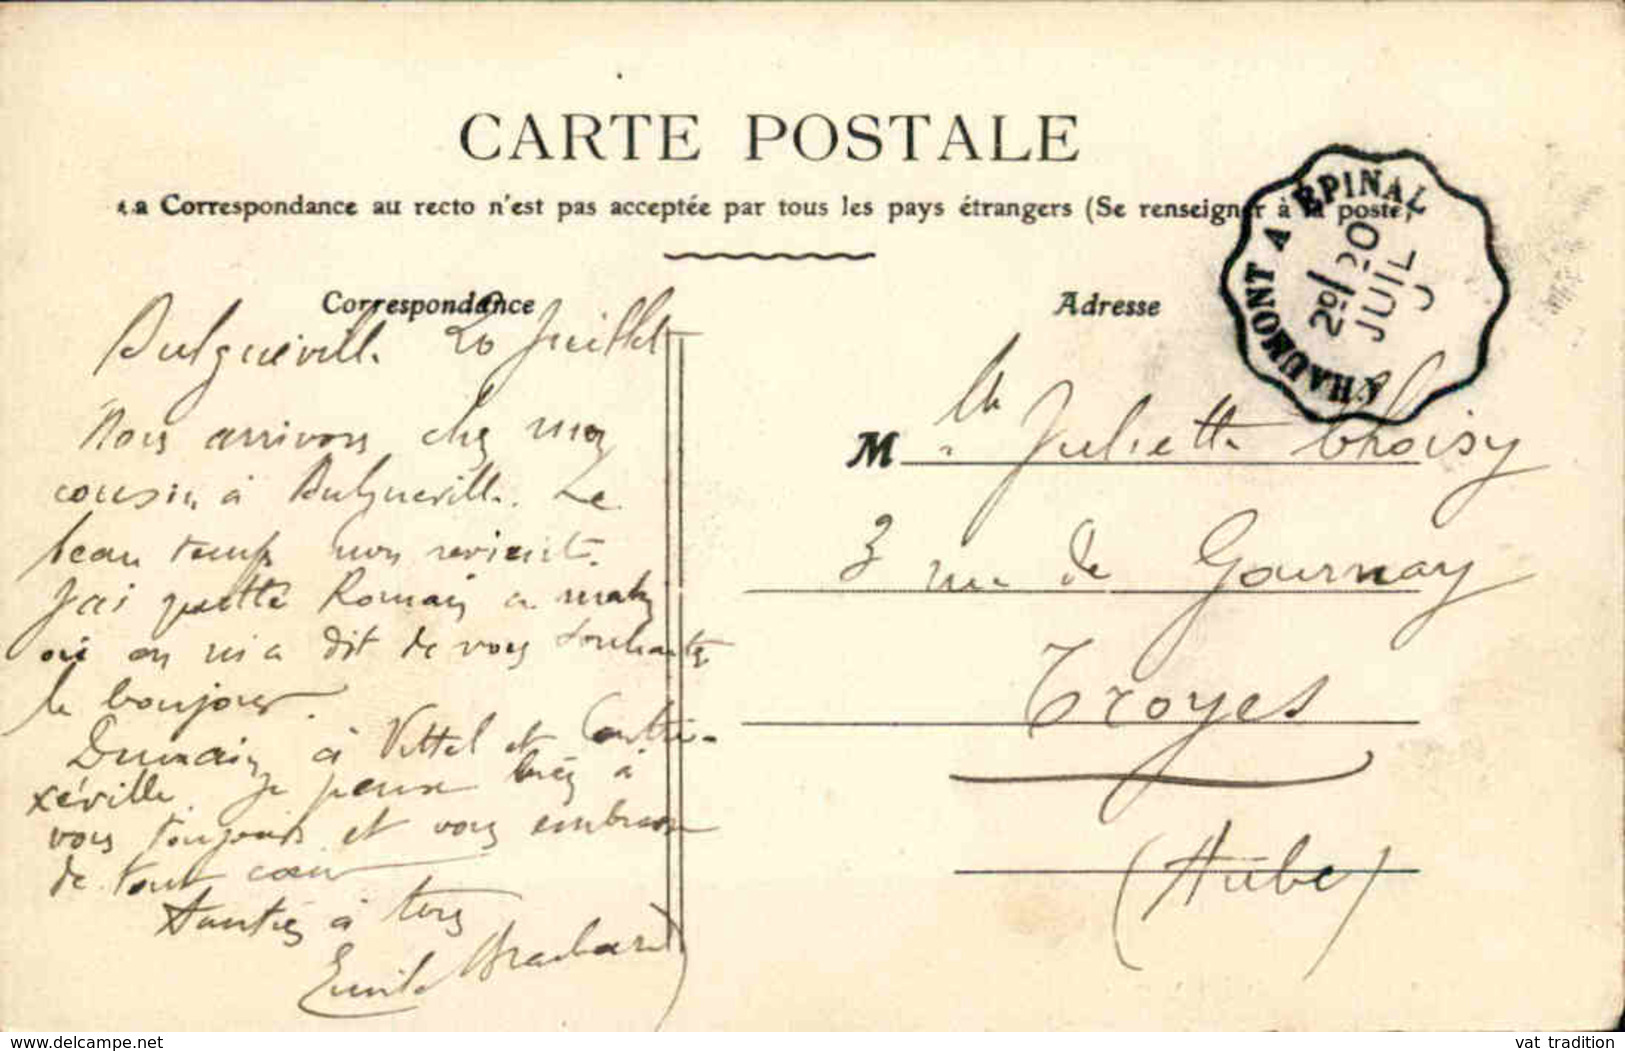 CARTE POSTALE
La Correspondance au recto n'est pas acceptée par tous les pays étrangers (Se renseigner à la poste)
Correspondance
Bulgnéville 20 Juillet
Nous arrivons chez mon
cousin à Bulgneville. Le
beau temps nous revient.
J'ai quitté Romain ce matin
où on m'a dit de vous souhaiter
le bonjour.
Demain à Vittel et Contre-
xéville. Je pense bien à
vous toujours et vous embrasse
de tout cœur
Amitiés à tous
Emile
Adresse
CHAUMONT A EPINAL
20
JUIL
M lle Juliette Choisy
3 rue de Gournay
Troyes
(Aube)
delcampe.net
vat tradition